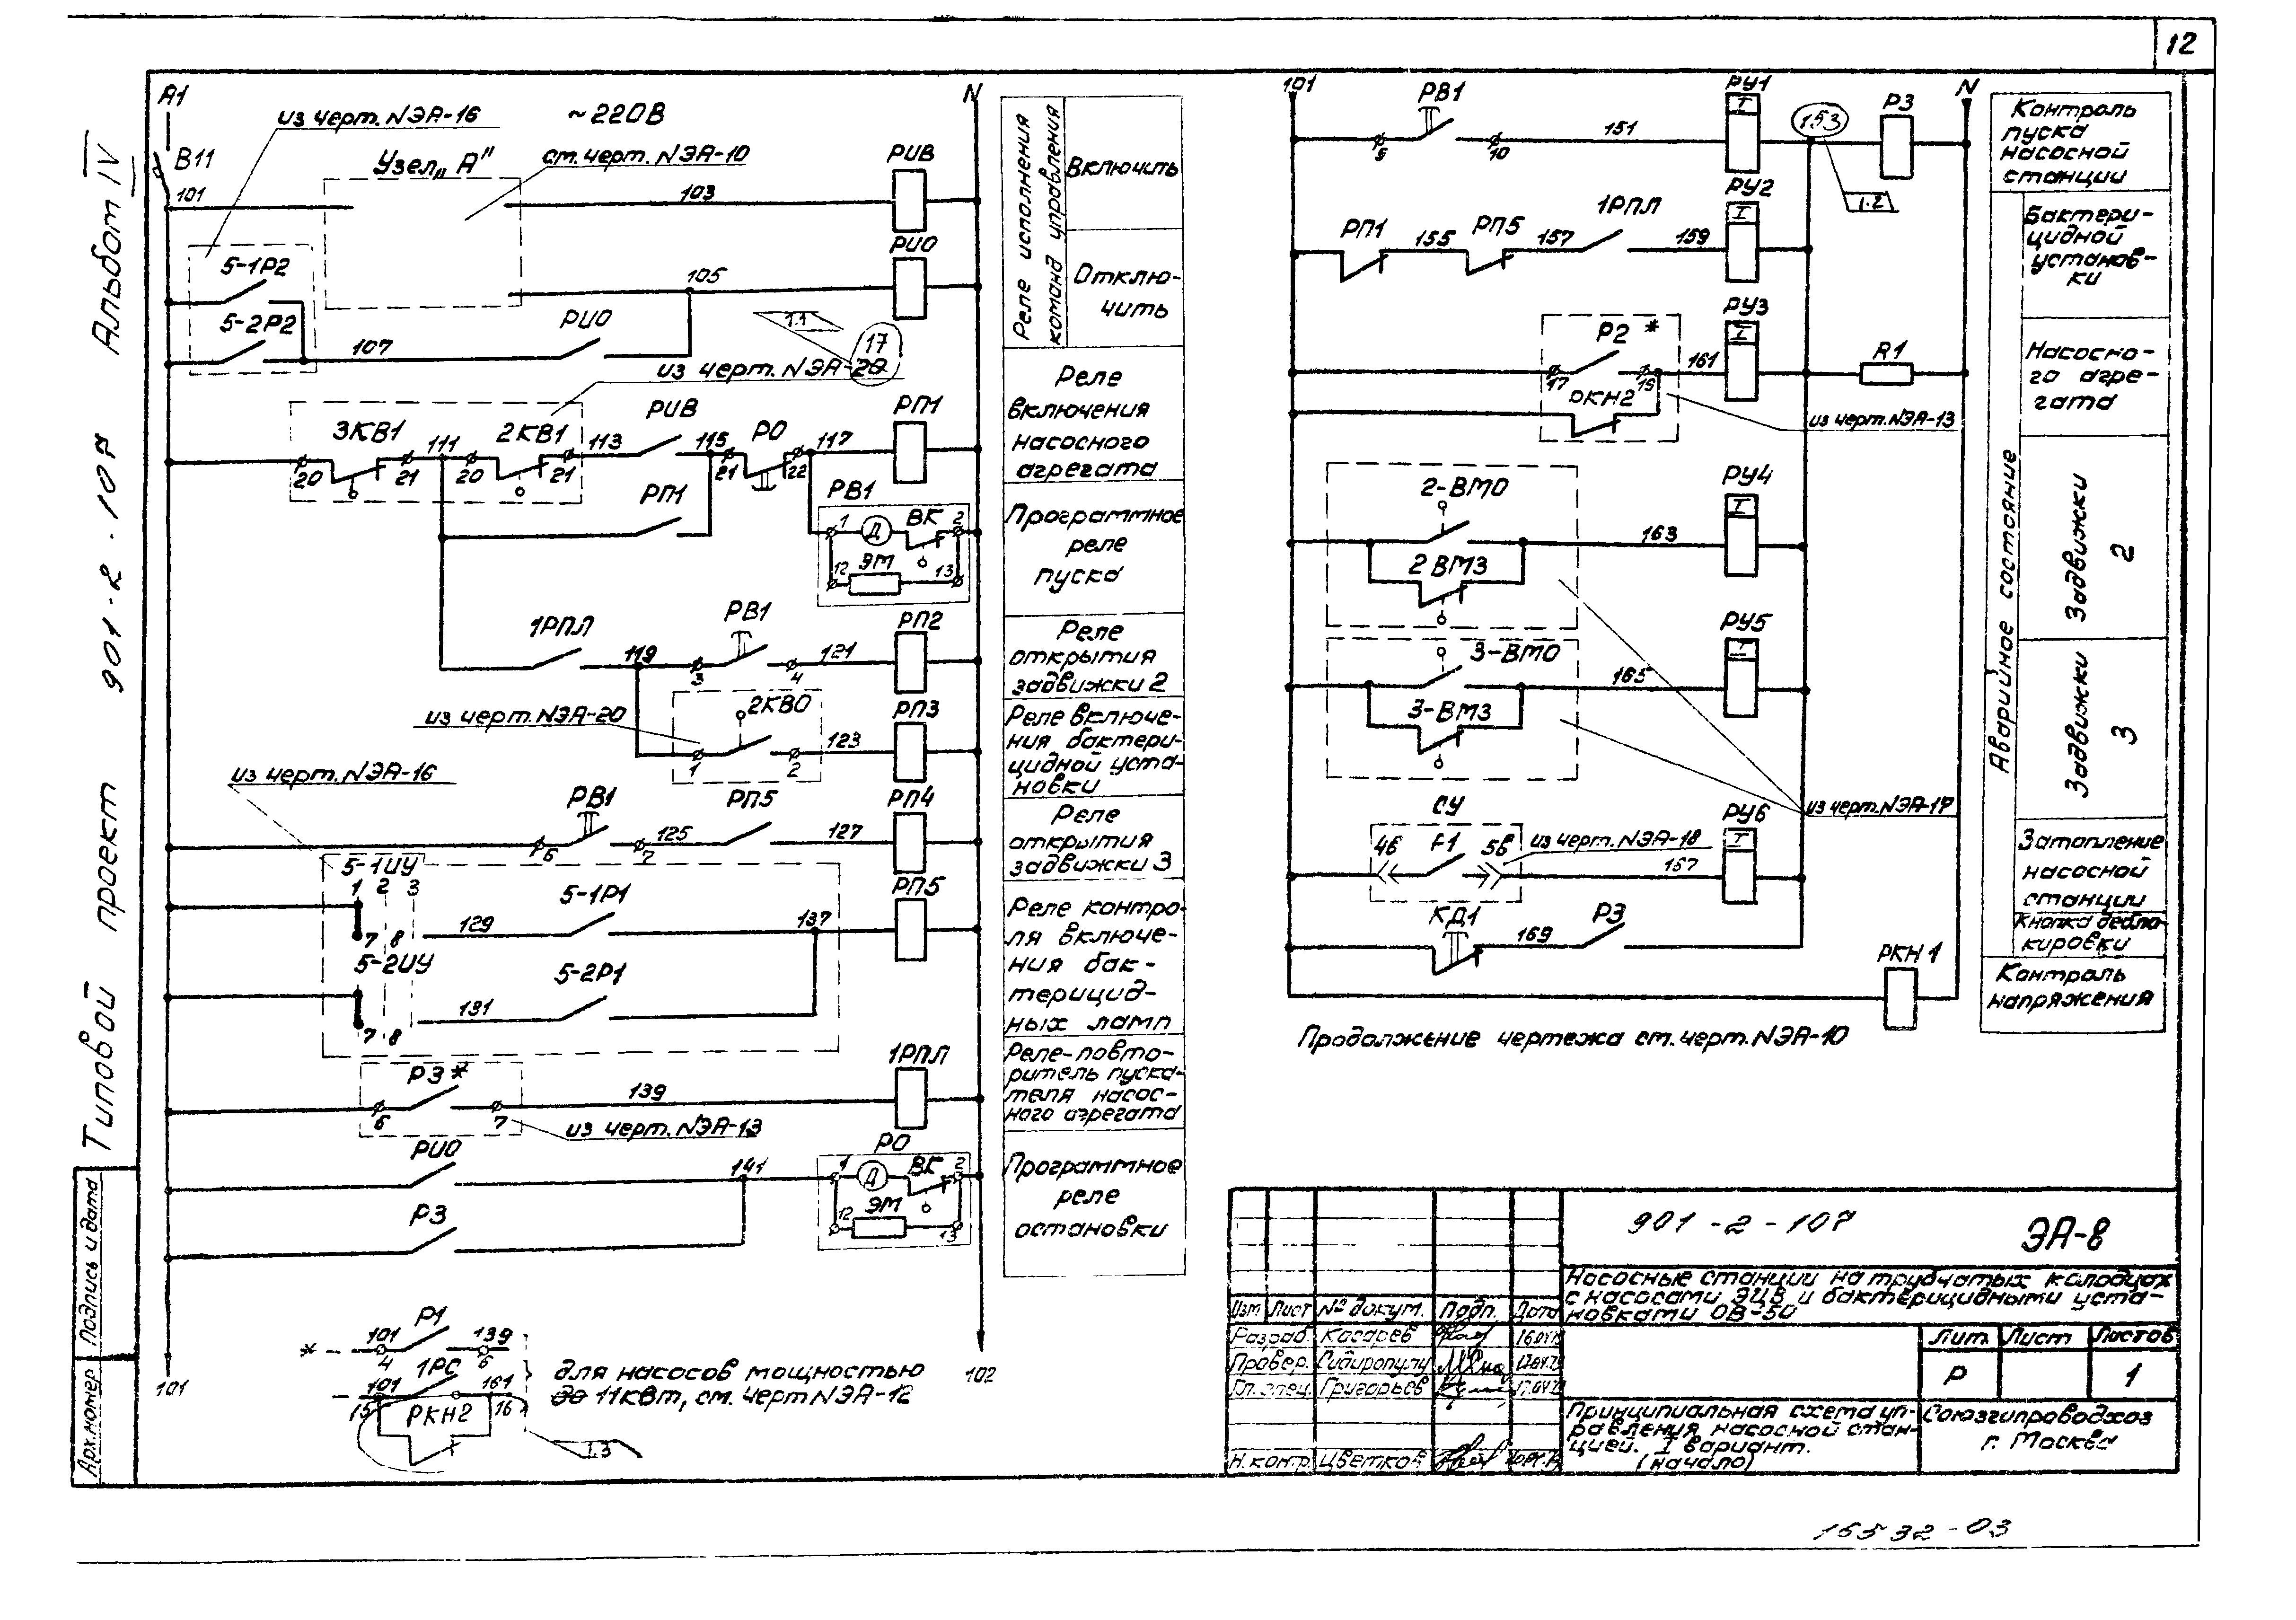 12
Типовой проект 901-2-107 Альбом IV
Подпись и дата
Арх.номер
А1
N
~220В
из черт. №ЭА-16
В11
101
Узел „А"
см. черт. №ЭА-10
103
РИВ
РИО
105
5-1Р2
5-2Р2
107
РИО
1.1
17
из черт. №ЭА-20
3КВ1
111
2КВ1
113
РИВ
115
РО
117
РП1
20
21
20
21
21
22
РП1
РВ1
1
Д
ВК
2
12
ЭМ
13
1РПЛ
119
РВ1
121
РП2
3
4
из черт. №ЭА-20
2КВО
123
РП3
1
2
из черт. №ЭА-16
РВ1
РП5
РП4
6
7
125
127
5-1ИУ
1 2 3
7 8
129
5-1Р1
137
РП5
5-2ИУ
7 8
131
5-2Р1
Р3*
6
7
139
1РПЛ
из черт. №ЭА-13
РИО
141
РО
1
Д
ВК
2
12
ЭМ
13
Р3
101
102
*
Р1
101
139
4
6
1РС
101
161
15
16
РКН2
1.3
для насосов мощностью
до 11квт, см. черт №ЭА-12
Реле исполнения
команд управления
Включить
Отклю-
чить
Реле
включения
насосного
агрегата
Программное
реле
пуска
Реле
открытия
задвижки 2
Реле включе-
ния бактери-
цидной уста-
новки
Реле
открытия
задвижки 3
Реле контро-
ля включе-
ния бак-
терицид-
ных ламп
Реле-повто-
ритель пуска-
теля насос-
ного агрегата
Программное
реле
остановки
101
N
РВ1
9
10
151
РУ1
I
153
Р3
1.2
РП1
155
РП5
157
1РПЛ
159
РУ2
I
Р2 *
17
19
161
РУ3
I
R1
РКН2
из черт. №ЭА-13
2-ВМО
2 ВМЗ
163
РУ4
I
3-ВМО
3-ВМЗ
165
РУ5
I
из черт. №ЭА-17
СУ
4б
F1
5в
из черт. №ЭА-18
167
РУ6
I
КД1
169
Р3
РКН 1
Продолжение чертежа см. черт. №ЭА-10
Контроль
пуска
насосной
станции
Аварийное состояние
Бактери-
цидной
установ-
ки
Насосно-
го агре-
гата
Задвижки
2
Задвижки
3
Затопление
насосной
станции
Кнопка дебло-
кировки
Контроль
напряжения
901-2-107
ЭА-8
Насосные станции на трубчатых колодцах
с насосами ЭЦВ и бактерицидными уста-
новками ОВ-50
Изм Лист № докум. Подп. Дата
Разраб. Касарев
Провер. Сидиропулу
Гл. спец. Григорьев
Н.контр. Цветков
Лит. Лист Листов
Р 1
Принципиальная схема уп-
равления насосной стан-
цией. I вариант.
(начало)
Союзгипроводхоз
г. Москва
16532-03